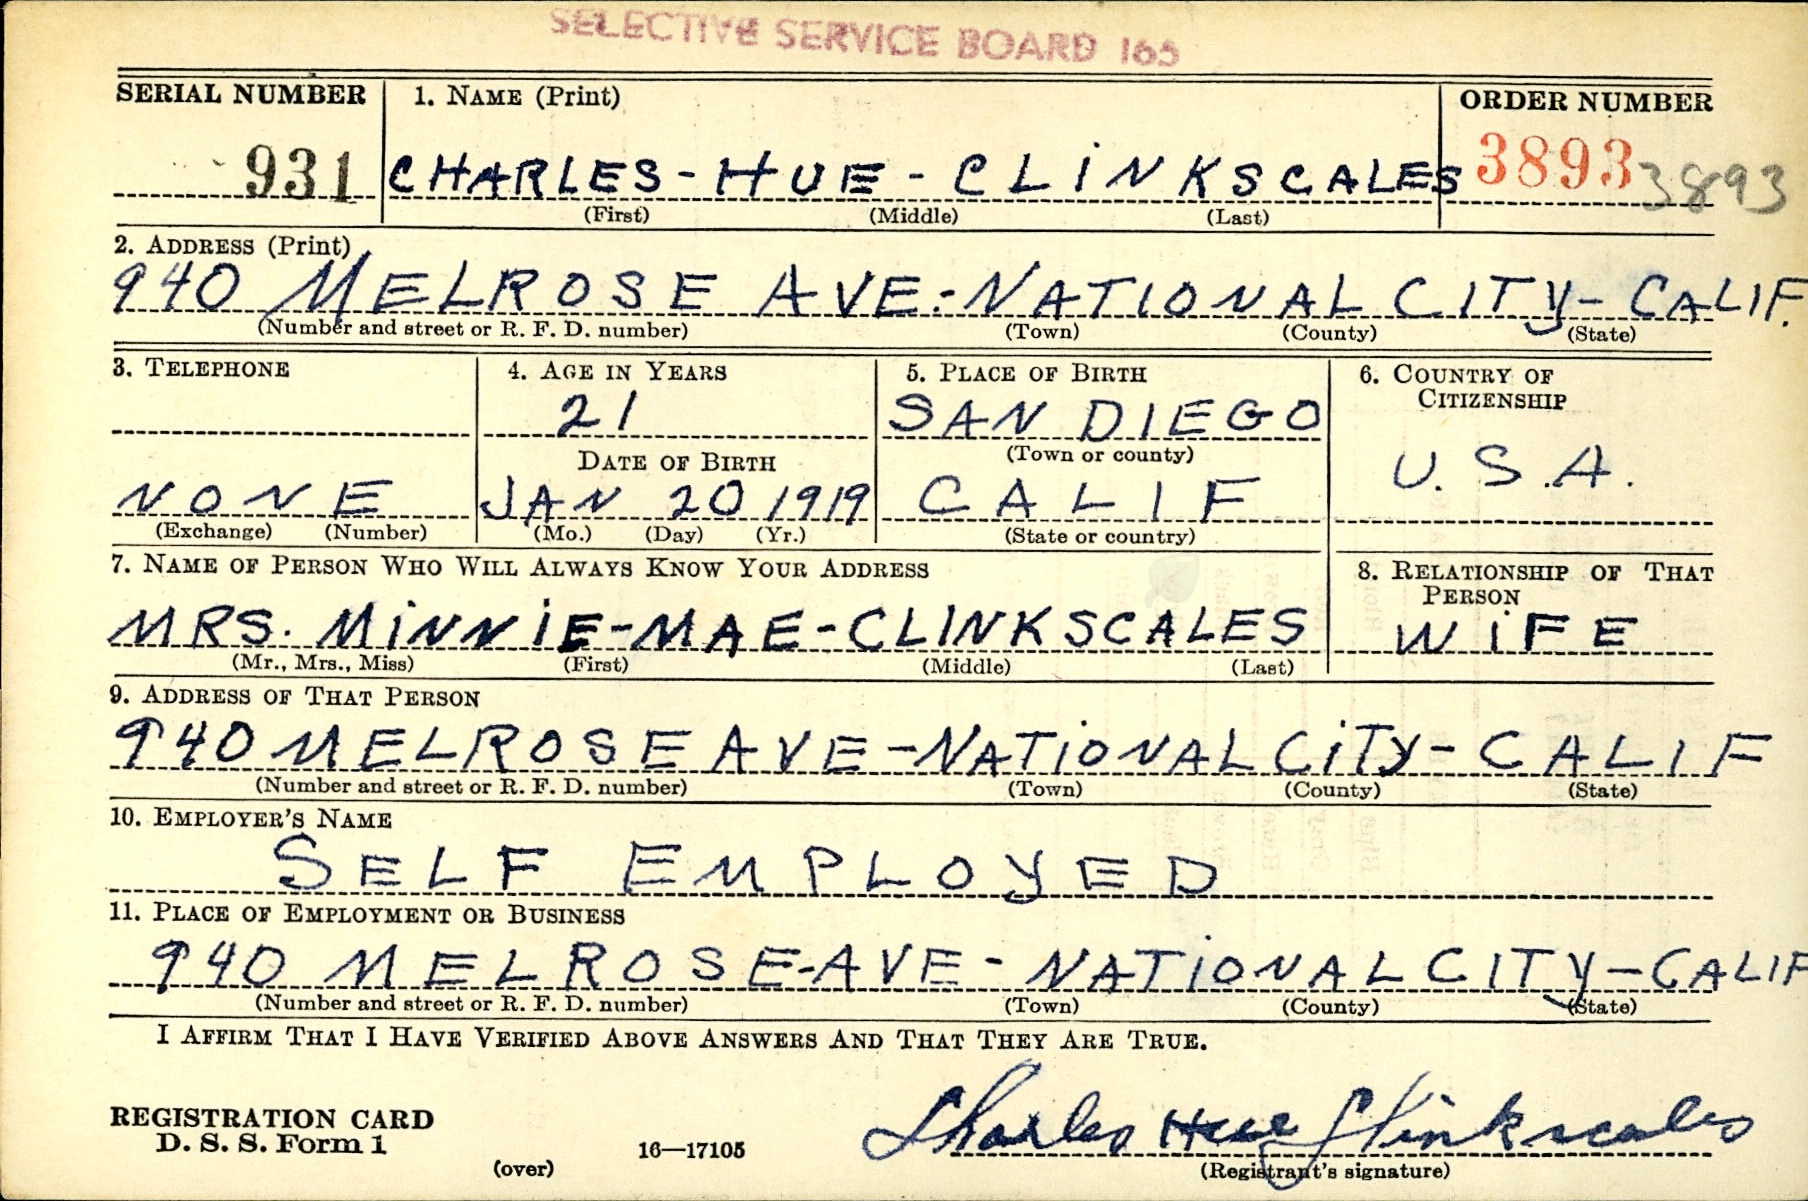 SELECTIVE SERVICE BOARD 165
SERIAL NUMBER 1. NAME (Print) ORDER NUMBER
931 CHARLES-HUE-CLINKSCALES 3893 3893
(First) (Middle) (Last)
2. ADDRESS (Print)
940 MELROSE AVE.-NATIONAL CITY-CALIF.
(Number and street or R. F. D. number) (Town) (County) (State)
3. TELEPHONE 4. AGE IN YEARS 5. PLACE OF BIRTH 6. COUNTRY OF
CITIZENSHIP
21 SAN DIEGO
DATE OF BIRTH (Town or county) U.S.A.
NONE JAN 20 1919 CALIF
(Exchange) (Number) (Mo.) (Day) (Yr.) (State or country)
7. NAME OF PERSON WHO WILL ALWAYS KNOW YOUR ADDRESS 8. RELATIONSHIP OF THAT
PERSON
MRS. MINNIE-MAE-CLINKSCALES WIFE
(Mr., Mrs., Miss) (First) (Middle) (Last)
9. ADDRESS OF THAT PERSON
940 MELROSE AVE-NATIONAL CITY-CALIF
(Number and street or R. F. D. number) (Town) (County) (State)
10. EMPLOYER'S NAME
SELF EMPLOYED
11. PLACE OF EMPLOYMENT OR BUSINESS
940 MELROSE-AVE-NATIONAL CITY-CALIF
(Number and street or R. F. D. number) (Town) (County) (State)
I AFFIRM THAT I HAVE VERIFIED ABOVE ANSWERS AND THAT THEY ARE TRUE.
REGISTRATION CARD
D. S. S. Form 1 16—17105 Charles Hue Clinkscales
(over) (Registrant's signature)